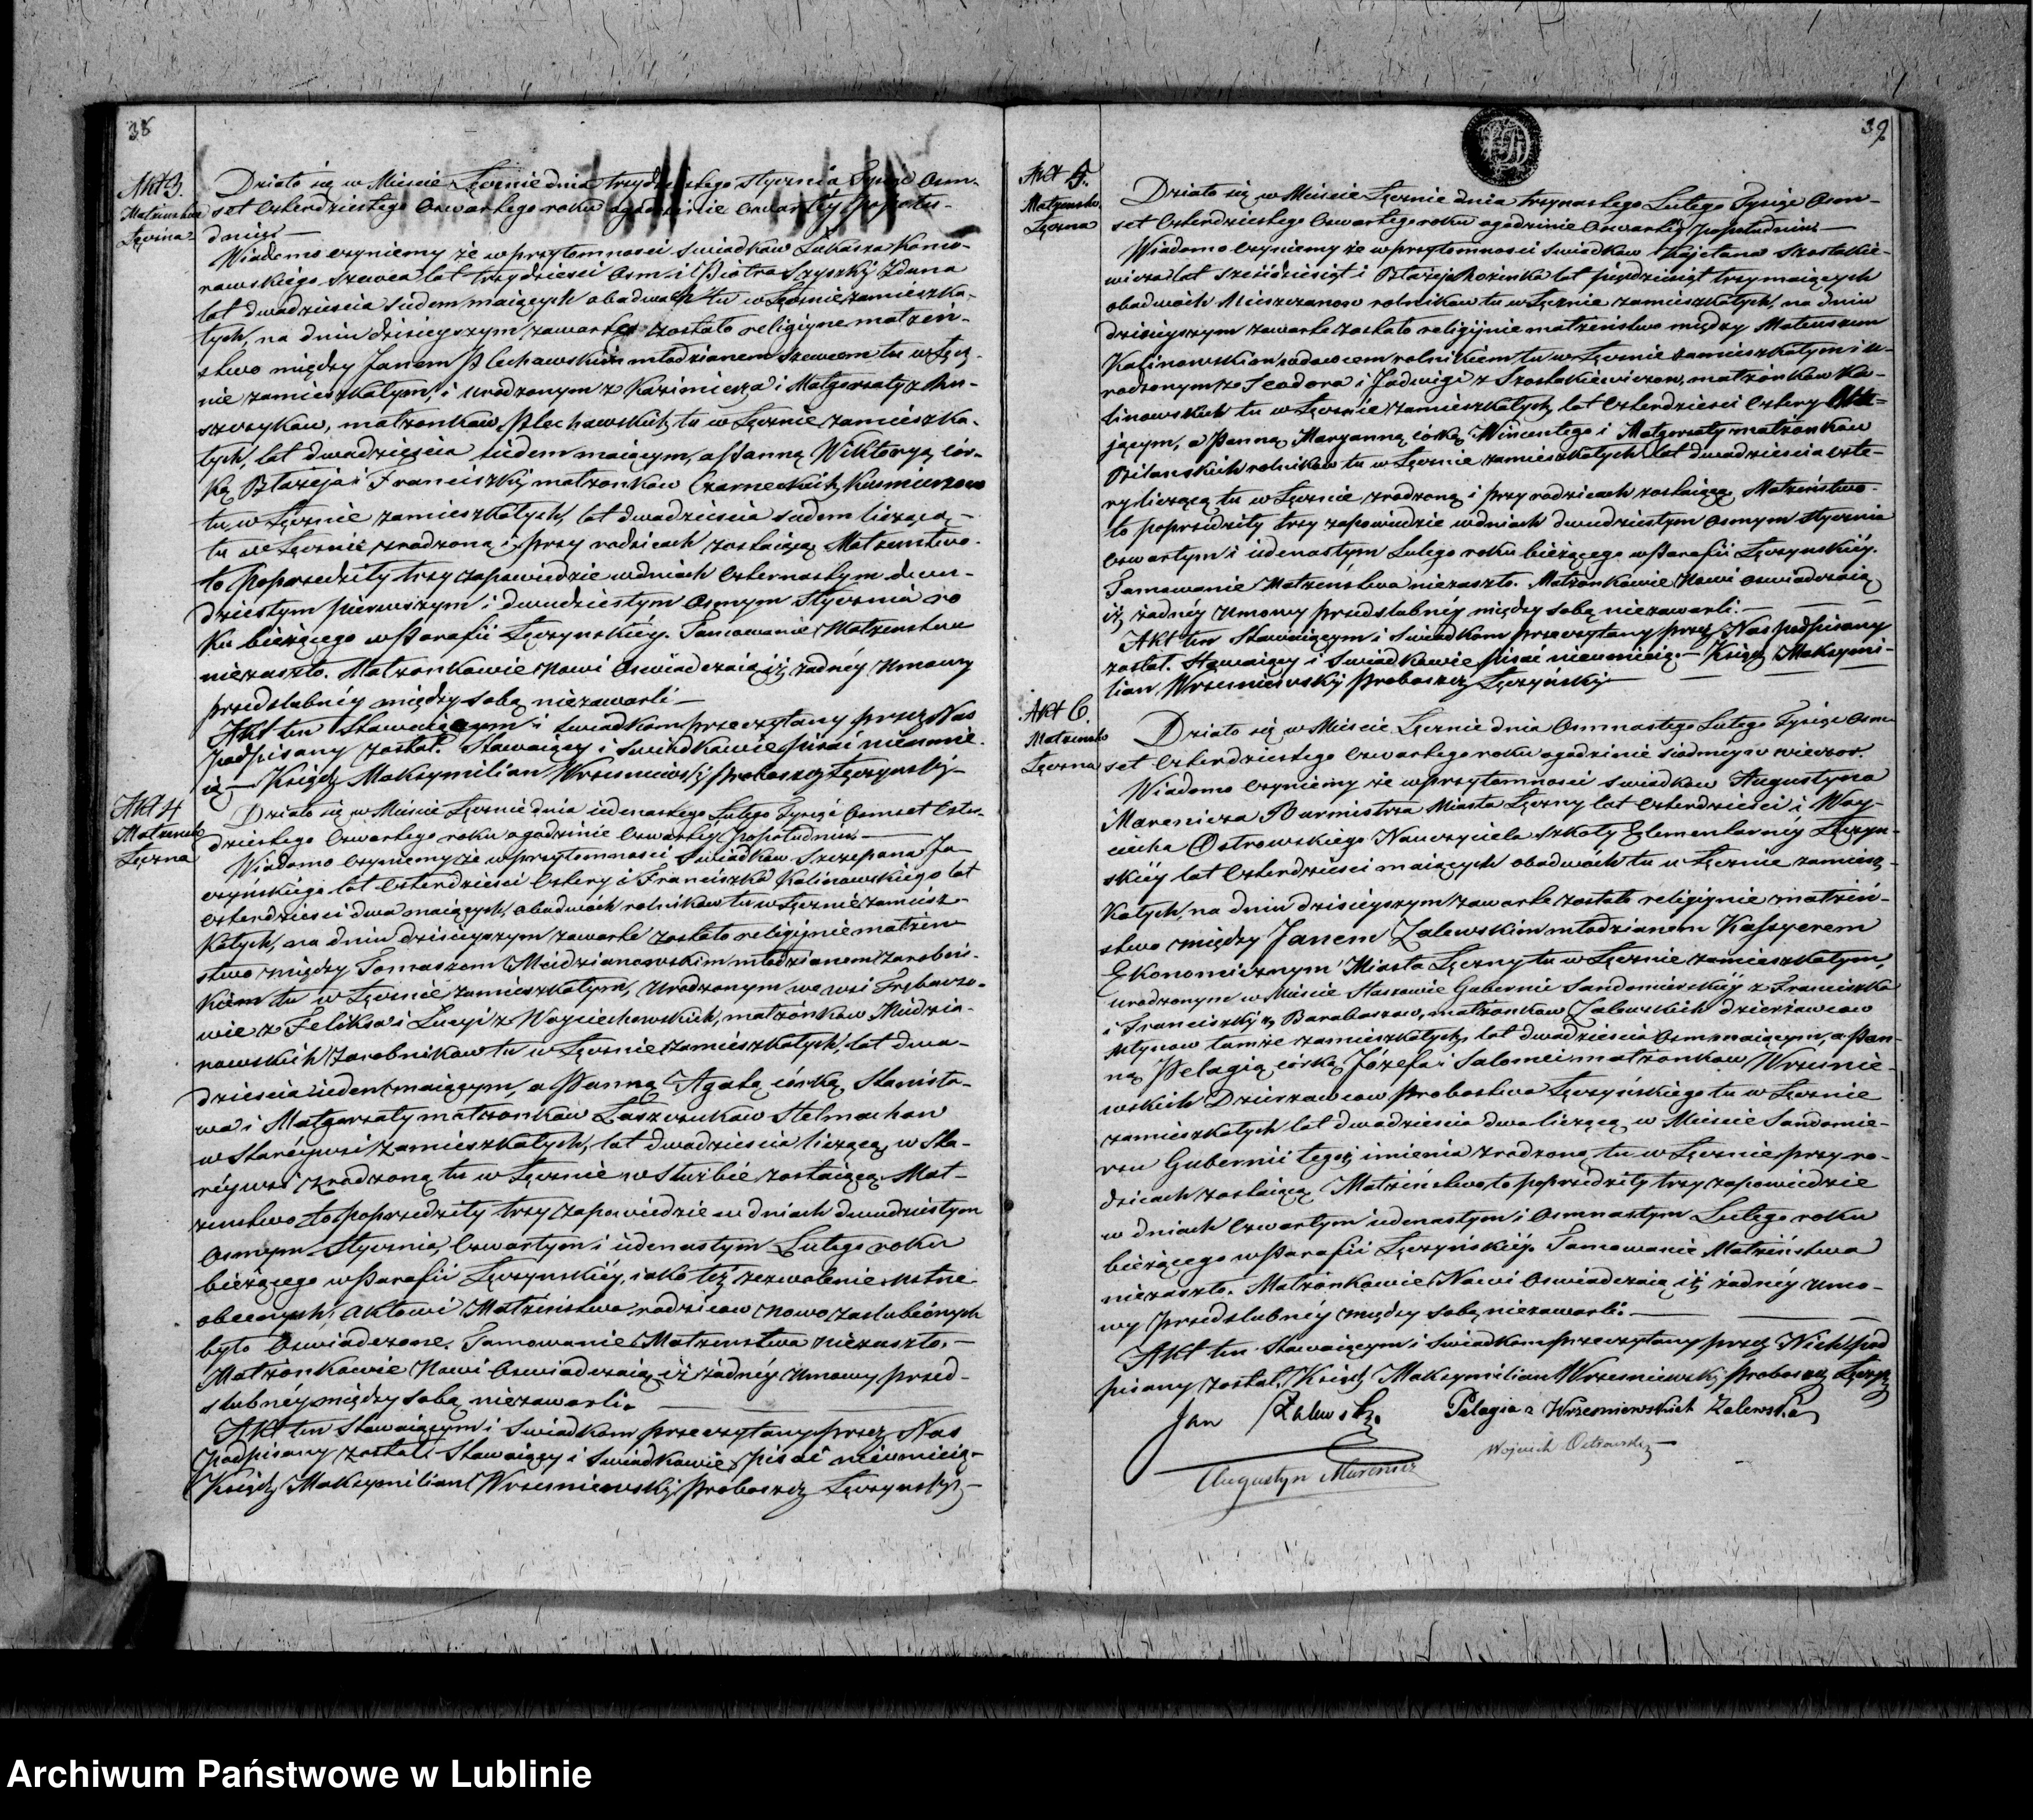 38
Akt 3.
Małżeństwo
Łęczna
Działo się w Mieście Łęcznie dnia trzydziestego Stycznia Tysiąc Osm-
set Czterdziestego Czwartego roku o godzinie czwartey popołu-
dniu. —
Wiadomo czyniemy że w przytomności świadków Łukasza Komo-
rowskiego Szewca lat trzydzieści Osm i Piotra Szyszki Zduna
lat dwadzieścia siedem maiących obudwóch tu w Łęcznie zamieszka-
łych, na dniu dzisieyszym zawarte zostało religiyne małżen-
stwo między Janem Plechawskim młodzianem Szewcem tu w Łęcz-
nie zamieszkałym, i urodzonym z Kazimierza i Małgorzaty z
małżonków Plechawskich tu w Łęcznie zamieszka-
łych, lat dwadzieścia siedem maiącym, a Panną Wiktoryą cór-
ką Błażeja i Franciszki małżonków Czarneckich Kusmierzow
tu w Łęcznie zamieszkałych, lat dwadzieścia siedem liczącą, —
tu w Łęcznie zrodzoną i przy rodzicach zostaiącą. Małżenstwo
to poprzedziły trzy zapowiedzie w dniach czternastym dwu-
dziestym pierwszym i dwudziestym Osmym Stycznia ro
ku bieżącego w Parafii Łęczyńskiéy. Tamowanie Małżenstwa
niezaszło. Małżonkowie Nowi Oswiadczaią iż żadnéy Umowy
przedslubnéy między sobą niezawarli —
Akt ten Stawaiącym i świadkom przeczytany przez Nas
podpisany został. Stawaiący i świadkowie pisać nieumie-
ią — Ksiądz Maksymilian Wrzesniewski Proboszcz Łęczynski —
Akt 4
Małżenst
Łęczna
Działo się w Mieście Łęcznie dnia iedenastego Lutego Tysiąc Osmset Czter-
dziestego Czwartego roku o godzinie czwartéy popołudniu. —
Wiadomo czyniemy że w przytomności świadków Szczepana Ja-
czynskiego lat czterdzieści Cztery i Franciszka Kalinowskiego lat
czterdzieści dwa maiących, obudwóch rolników tu w Łęcznie zamiesz-
kałych, na dniu dzisieyszym zawarte zostało religijnie małżen
stwo między Tomaszem Meidzianowskim młodzianem zarobni-
kiem tu w Łęcznie zamieszkałym, urodzonym we wsi Trębaczo-
wie z Felixa i Lucyi z Woyciechowskich, małżonków Meidzia-
nowskich zarobników tu w Łęcznie zamieszkałych, lat dwa-
dzieścia ieden maiącym, a Panną Agatą córką Stanisła-
wa i Małgorzaty małżonków Łaszczuków Stelmachow
w Staréywsi zamieszkałych, lat dwadzieścia liczącą w Sta-
réywsi zrodzoną tu w Łęcznie w służbie zostaiącą. Mał-
zenstwo to poprzedziły trzy zapowiedzie w dniach dwudziestym
Osmym Stycznia, Czwartym i iedenastym Lutego roku
bieżącego w Parafii Łęczynskiéy, iako też zezwolenie ustne
obecnych Aktowi Małżeństwa rodziców nowo zaslubionych
było Oswiadczone. Tamowanie Małżenstwa niezaszło. —
Małżonkowie Nowi Oswiadczaią iż żadnéy Umowy przed-
slubnéy między sobą niezawarli.
Akt ten Stawaiącym i świadkom przeczytany przez Nas
podpisany został. Stawaiący i świadkowie pisać nieumieią —
Ksiądz Maksymilian Wrzesniewski Proboszcz Łęczynski —
39
Akt 5.
Małżenstwo
Łęczna
Działo się w Mieście Łęcznie dnia trzynastego Lutego Tysiąc Osm-
set Czterdziestego Czwartego roku o godzinie czwartéy popołudniu. —
Wiadomo czyniemy że w przytomności świadków Kajetana Szostakie-
wicza lat sześćdziesiąt i Błażeja Rożinka lat pięćdziesiąt trzy maiących
obudwóch Mieszczanow rolników tu w Łęcznie zamieszkałych, na dniu
dzisieyszym zawarte zostało religijnie małżeństwo między Mateuszem
Kalinowskim wdowcem rolnikiem tu w Łęcznie zamieszkałym i u-
rodzonym z Teodora i Jadwigi z Szostakiewiczow, małżonków Ka-
linowskich tu w Łęcznie zamieszkałych lat czterdzieści Cztery
jącym, a Panną Maryanną córką Wincentego i Małgorzaty małżonków
Bilanskich rolników tu w Łęcznie zamieszkałych lat dwadzieścia czte-
ry liczącą tu w Łęcznie zrodzoną i przy rodzicach zostaiącą. Małżeństwo
to poprzedziły trzy zapowiedzie w dniach dwudziestym Osmym Stycznia
czwartym i iedenastym Lutego roku bieżącego w Parafii Łęczynskiéy.
Tamowanie Małżeństwa niezaszło. Małżonkowie Nowi Oswiadczaią
iż żadnéy Umowy przedslubnéy między sobą niezawarli. —
Akt ten Stawaiącym i świadkom przeczytany przez Nas podpisany
został. Stawaiący i świadkowie pisać nieumieią. — Ksiądz Maksymi-
lian Wrzesniewski Proboszcz Łęczyński
Akt 6.
Małżenstwo
Łęczna
Działo się w Mieście Łęcznie dnia Osmnastego Lutego Tysiąc Osm
set Czterdziestego Czwartego roku o godzinie siódméy w wieczor.
Wiadomo czyniemy że w przytomności świadków Augustyna
Marenicza Burmistrza Miasta Łęczny lat czterdzieści i Woy-
ciecha Ostrowskiego Nauczyciela Szkoły Elementarnéy Łęczyn-
skiéy lat czterdzieści maiących obudwóch tu w Łęcznie zamiesz-
kałych, na dniu dzisieyszym zawarte zostało religiynie małżeń-
stwo między Janem Zalewskim młodzianem Kassyerem
Ekonomicznym Miasta Łęczny tu w Łęcznie zamieszkałym,
urodzonym w Mieście Staszowie Gubernii Sandomierskiéy z Franciszka
i Franciszki z Barabaszow, małżonków Zalewskich dzierżawcow
młynow tamże zamieszkałych, lat dwadzieścia Osm maiącym, a Pan-
ną Pelagią córką Józefa i Salomei małżonkow Wrzesnie-
wskich Dzierzawcow Probostwa Łęczyńskiego tu w Łęcznie
zamieszkałych lat dwadzieścia dwa liczącą w Mieście Sandomie-
rzu Gubernii tegoż imienia zrodzoną tu w Łęcznie przy ro-
dzicach zostaiącą. Małżeństwo to poprzedziły trzy zapowiedzie
w dniach Czwartym iedenastym i Osmnastym Lutego roku
bieżącego w Parafii Łęczyńskiéy. Tamowanie Małżeństwa
niezaszło. Małżonkowie Nowi Oswiadczaią iż żadnéy umo-
wy przedslubnéy między sobą niezawarli. —
Akt ten Stawaiącym i świadkom przeczytany przez Nich pod
pisany został. Ksiądz Maksymilian Wrzesniewski Proboszcz Łęczy
Jan Zalewski
Pelagia z Wrzesniewskich Zalewska
Wojciech Ostrowski
Augustyn Marenicz
Archiwum Państwowe w Lublinie